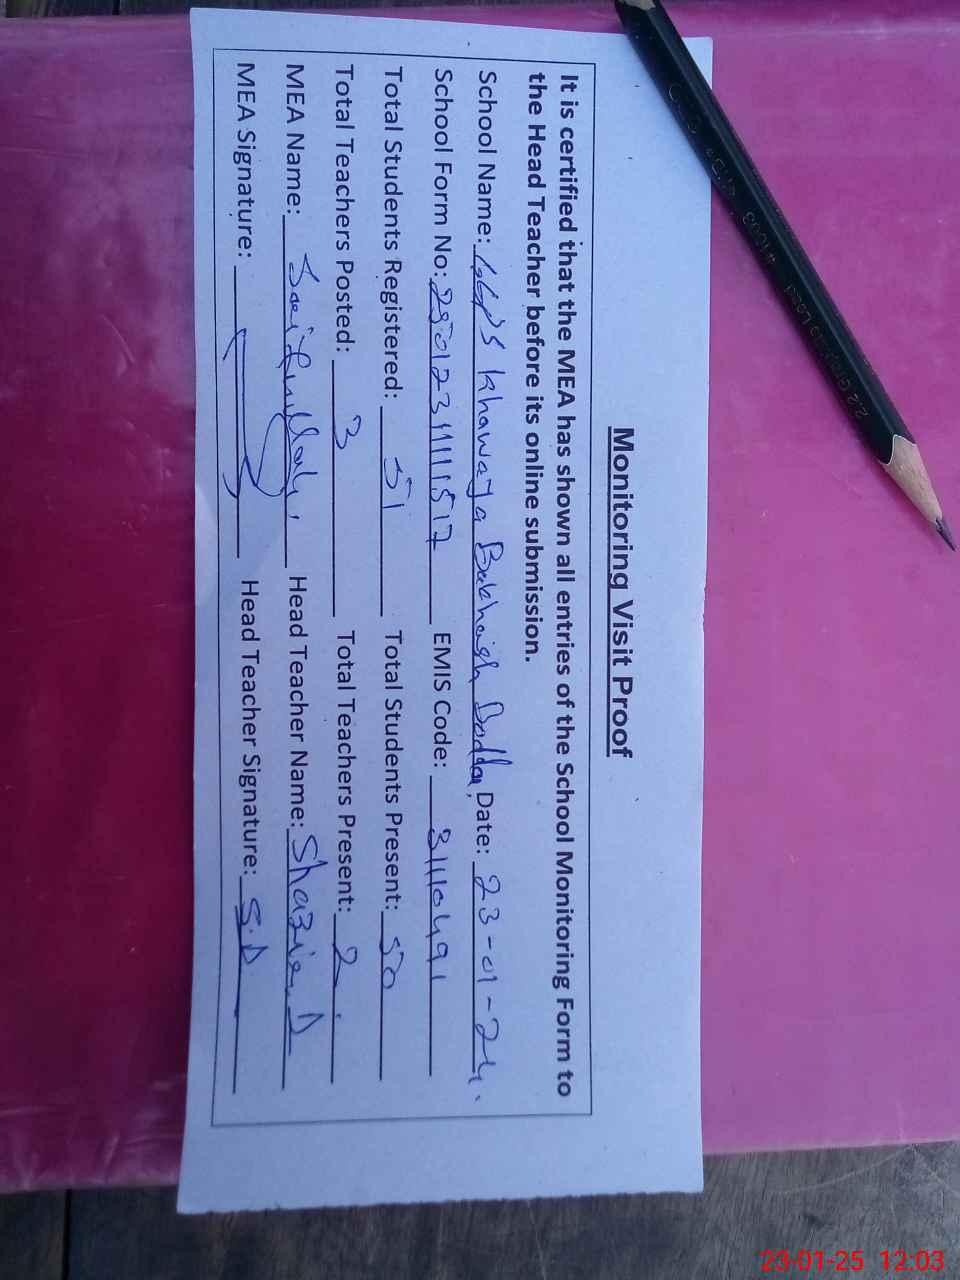 Monitoring Visit Proof
It is certified that the MEA has shown all entries of the School Monitoring Form to
the Head Teacher before its online submission.
School Name: GGPS Khawaja Bakhsish Dodda, Date: 23-01-24.
School Form No: 250123111517 EMIS Code: 31110491
Total Students Registered: 51 Total Students Present: 50
Total Teachers Posted: 3 Total Teachers Present: 2
MEA Name: Saifullah Head Teacher Name: Shazia D
MEA Signature: Head Teacher Signature: S.D
2.2 Graphite Lead
23-01-25 12:03